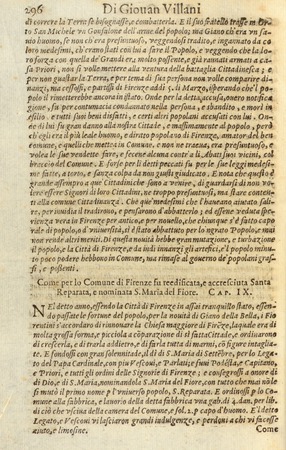 296 Di Giovan Villani
di correre la Terra se bisognasse, e combatterla. E il suo fratello trasse in Or-
to San Michele va Gonfalone dell'arme del popolo; ma Giano ch'era vn sa-
uio huomo, se non ch'era presuntuoso, veggendosi tradito, e ingannato da co
loro medesimi, ch'erano stati con lui a fare il Popolo, e veggendo che la lo-
ro forza con quella de' Grandi era molto possente, e già rannati armati a ca-
sa Priori, non si volle mettere alla ventura della battaglia Cittadinesca; e
per non guastar la Terra, e per tema di sua persona non volle comparire di-
nanzi, ma cessossi, e partissi di Firenze addi 5. di Marzo, sperando che'l po-
polo il rimetterebbe ancora in istato. Onde per la detta accusa, ouero notifica
gione, fu per contumacia condannato nella persona, e sbandito, e morì in
esilio, e tutti suoi beni disfatti, e certi altri popolani accusati con lui. On-
de di lui fu gran danno alla nostra Cittade, e massimamente al popolo, però
ch'egli era il più leale huomo, e diritto popolano di Firenze, amator del bene
comune, e quelli che mettea in Comune, e non ne traeua, era presuntuoso, e
volea le sue vendette fare, e fecene alcuna contro li Abati suoi vicini, col
braccio del Comune. E forse per li detti peccati fu per le sue leggi medesi-
me fatte, a torto, e senza colpa da non giusti giudicato. E nota che questo è
grande assempro a que' Cittadini che sono a venire, di guardarsi di non vo-
lere essere Signori di loro Cittadini, ne troppo presuntuosi, ma stare conten-
ti alla comune Cittadinanza. Che que' medesimi che l'haueano aiutato sali-
re, per inuidia il tradirono, e pensarono d'abbatterlo; ed essene veduta spe-
rienza vera in Firenze per antico, e per nouello, che chiunque s'è fatto capo
rale di popolo, o d'vniuersità, si è stato abbattuto per lo ingrato Popolo, e mai
non rende altri meriti. Di questa nouità hebbe gran mutazione, e turbazione
il popolo, e la Città di Firenze, e da indi innanzi gli artefici, e'l popolo minu-
to poco podere hebbono in Comune, ma rimase al gouerno de' popolani gras-
si, e possenti.
Come per lo Comune di Firenze fu reedificata, e accresciuta Santa
Reparata, e nominata S. Maria del Fiore. CAP. IX.
NEl detto anno, essendo la Città di Firenze in assai tranquillo stato, essen-
do passate le fortune del popolo, per la nouità di Giano della Bella, i Fio
rentini s'accordaro di rinnouare la Chiesa maggiore di Firēze, la quale era di
molta grossa forma, e piccola a cōparazione di sì fatta Cittade, e ordinarono
di crescerla, e di trarla addietro, e di farla tutta di marmi, cō figure intaglia-
te. E fondossi con gran solennitade, il dì di S. Maria di Settēbre, per lo Lega-
to del Papa Cardinale, con piu Vescoui, e Prelati; e funi Podesta, e Capitano,
e Priori, e tutti gli ordini delle Signorie di Firenze; e consegrossi a onore di
di Dio, e di S. Maria, nominandola S. Maria del Fiore, con tutto che mai nō le
si mutò il primo nome p l'vniuerso popolo, S. Reparata. E ordinossi p lo Co-
mune alla fabbrica, e lauorio della detta Chiesa vna gab. di 4. dan. per lib.
di ciò che vscina della camera del Comune, e sol. 2. p capo d'huomo. E'l detto
Legato, e Vescoui vi lasciaron grandi indulgenze, e perdoni a chi vi facesse
aiuto, e limosine. Come